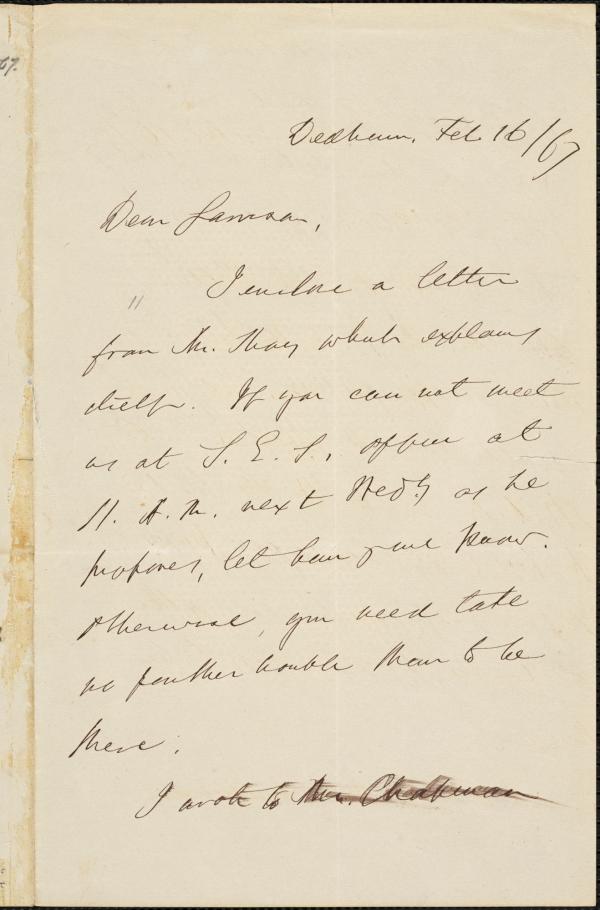 67.
Dedham, Feb 16/67
Dear Garrison,
I enclose a letter
from Mr. May which explains
itself. If you can not meet
us at S. E. S. office at
11. A. M. next Wed'y as he
proposes, let him &amp; me know.
Otherwise, you need take
no further trouble than to be
there.
I wrote to Mrs. Chapman